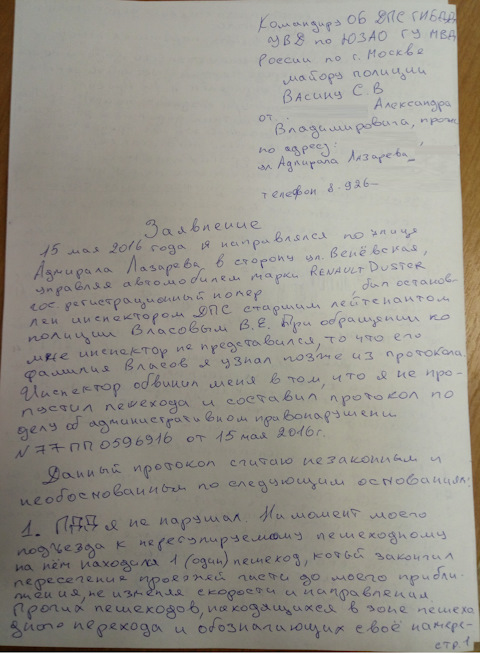 Командиру ОБ ДПС ГИБДД
УВД по ЮЗАО ГУ МВД
России по г. Москве
майору полиции
Васину С.В
от Александра
Владимировича, прож
по адресу:
ул Адмирала Лазарева
телефон 8-926-
Заявление
15 мая 2016 года я направлялся по улице
Адмирала Лазарева в сторону ул. Венёвская,
управляя автомобилем марки RENAULT DUSTER
гос регистрационный номер , был останов-
лен инспектором ДПС старшим лейтенантом
полиции Власовым В.Е. При обращении ко
мне инспектор не представился, то что его
фамилия Власов я узнал позже из протокола.
Инспектор обвинил меня в том, что я не про-
пустил пешехода и составил протокол по
делу об административном правонарушени
N 77 ПП 0596916 от 15 мая 2016г.
Данный протокол считаю незаконным и
необоснованным по следующим основаниям:
1. ПДД я не нарушал. На момент моего
подъезда к нерегулируемому пешеходному
на нём находила 1 (один) пешеход, котый закончил
пересечение проезжей части до моего прибли-
жения, не изменяя скорости и направления
Прочих пешеходов, находящихся в зоне пешехо
дного перехода и обозначающих своё намере-
стр. 1